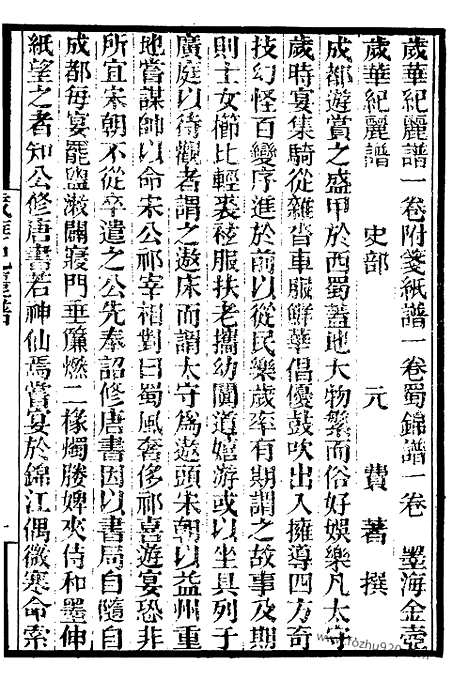 歲華紀麗譜一卷附箋紙譜一卷蜀錦譜一卷　墨海金壺
歲華紀麗譜　史部　元　費著撰
成都遊賞之盛甲於西蜀蓋地大物繁而俗好娛樂凡太守
歲時宴集騎從雜沓車服鮮華倡優鼓吹出入擁導四方奇
技幻怪百變序進於前以從民樂歲率有期謂之故事及期
則士女櫛比輕裘袨服扶老攜幼闐道嬉游或以坐具列于
廣庭以待觀者謂之遨床而謂太守爲遨頭宋朝以益州重
地嘗謀帥以命宋公祁宰相對曰蜀風奢侈祁喜遊宴恐非
所宜宋朝不從卒遣之公先奉詔修唐書因以書局自隨自
成都每宴罷盥漱闢寢門垂簾燃二椽燭媵婢夾侍和墨伸
紙望之者知公修唐書若神仙焉嘗宴於錦江偶微寒命索
歲華紀麗譜
一